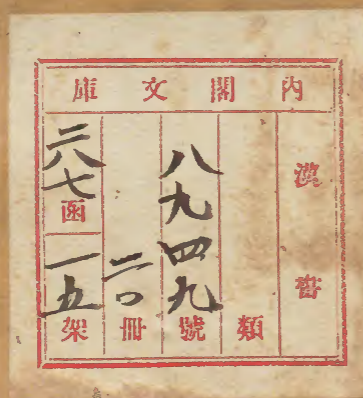 內閣文庫
漢書
類
八九四九號
二〇冊
二八七函
一五架